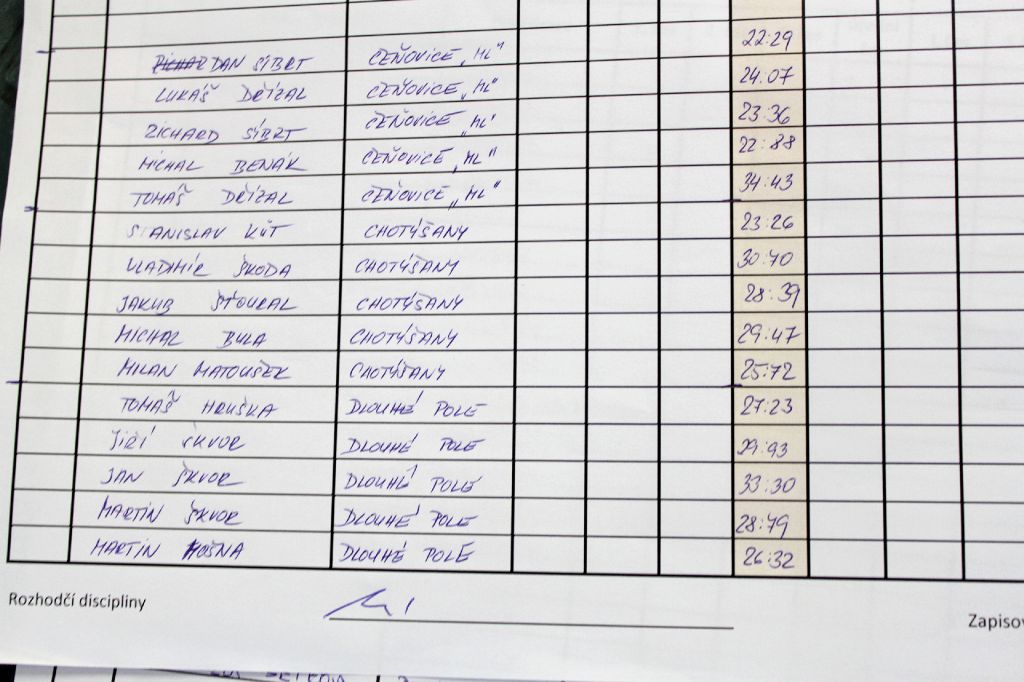 DAN SÍBRT ČEŇOVICE „ML" 22:29
LUKÁŠ DŘÍZAL ČEŇOVICE „ML" 24:07
RICHARD SÍBRT ČEŇOVICE „ML" 23:36
MICHAL BENÁK ČEŇOVICE „ML" 22:88
TOMÁŠ DŘÍZAL ČEŇOVICE „ML" 34:43
STANISLAV KŮT CHOTÝŠANY 23:26
VLADIMÍR ŠKODA CHOTÝŠANY 30:70
JAKUB ŠTOURAL CHOTÝŠANY 28:39
MICHAL BULA CHOTÝŠANY 29:47
MILAN MATOUŠEK CHOTÝŠANY 25:72
TOMÁŠ HRUŠKA DLOUHÉ POLE 27:23
JIŘÍ ŠKVOR DLOUHÉ POLE 29:93
JAN ŠKVOR DLOUHÉ POLE 33:30
MARTIN ŠKVOR DLOUHÉ POLE 28:79
MARTIN HOŠNA DLOUHÉ POLE 26:32
Rozhodčí discipliny
Zapisov